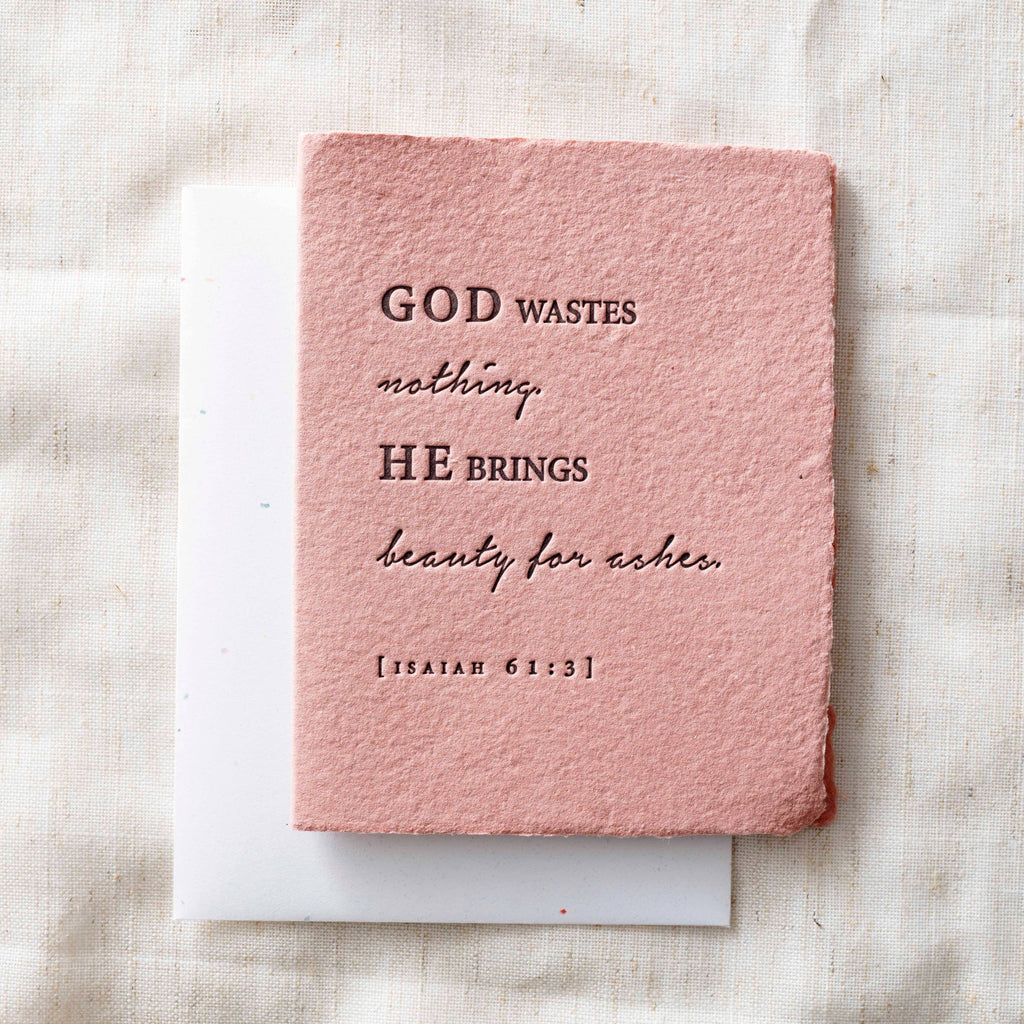 GOD WASTES
nothing.
HE BRINGS
beauty for ashes.
[ISAIAH 61:3]